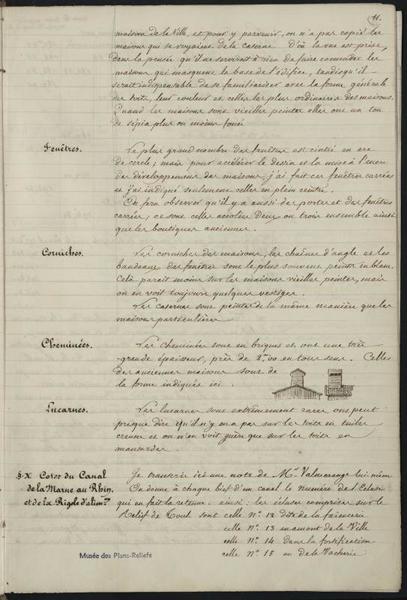 11.
maisons de la Ville et pour y parvenir, on n'a pas copié les
maisons qui se voyaient de la caserne d'où la vue est prise,
dans la pensée qu'il ne servirait à rien de faire connaître les
maisons qui masquent la base de l'édifice, tandis qu'il
serait indispensable de se familiariser avec la forme générale
des toits, leur couleur et celles les plus ordinaires des maisons.
Quand les maisons sont vieilles peintes elles ont un ton
de sépia plus ou moins foncé
Fenêtres.
Le plus grand nombre des fenêtres est cintré en arc
de cercle; mais pour accélérer le dessin et la mise à l'encre
des développements des maisons, j'ai fait ces fenêtres carrées
et j'ai indiqué seulement celles en plein cintre.
On fera observer qu'il y a aussi des portes et des fenêtres
carrées, ce sont celles accolées deux ou trois ensemble ainsi
que les boutiques anciennes.
Corniches.
Les corniches des maisons, les chaînes d'angle et les
bandeaux des fenêtres sont le plus souvent peints en blanc.
Cela paraît moins sur les maisons vieilles peintes, mais
on en voit toujours quelques vestiges.
Les casernes sont peintes de la même manière que les
maisons particulières
Cheminées.
Les cheminées sont en briques et ont une très
grande épaisseur, près de 2,m00 en tous sens. Celles
des anciennes maisons sont de
la forme indiquée ici.
Lucarnes.
Les lucarnes sont extrêmement rares, on peut
presque dire qu'il n'y en a pas sur les toits en tuiles
creuses et on n'en voit guère que sur les toits en
mansardes.
§ X Cours du Canal
de la Marne au Rhin
et de la Rigole d'alim.on
Je transcris ici une note de Mr. Valmorange lui même
On donne à chaque bief d'un canal le numéro de l'Ecluse
qui en fait la retenue. ainsi: les écluses comprises sur le
Relief de Toul sont celle No. 12 dite de la faïencerie
celle No. 13 en amont de la Ville
celle No. 14 dans la fortification
celle No. 15 au de la Vacherie
Musée des Plans-Reliefs